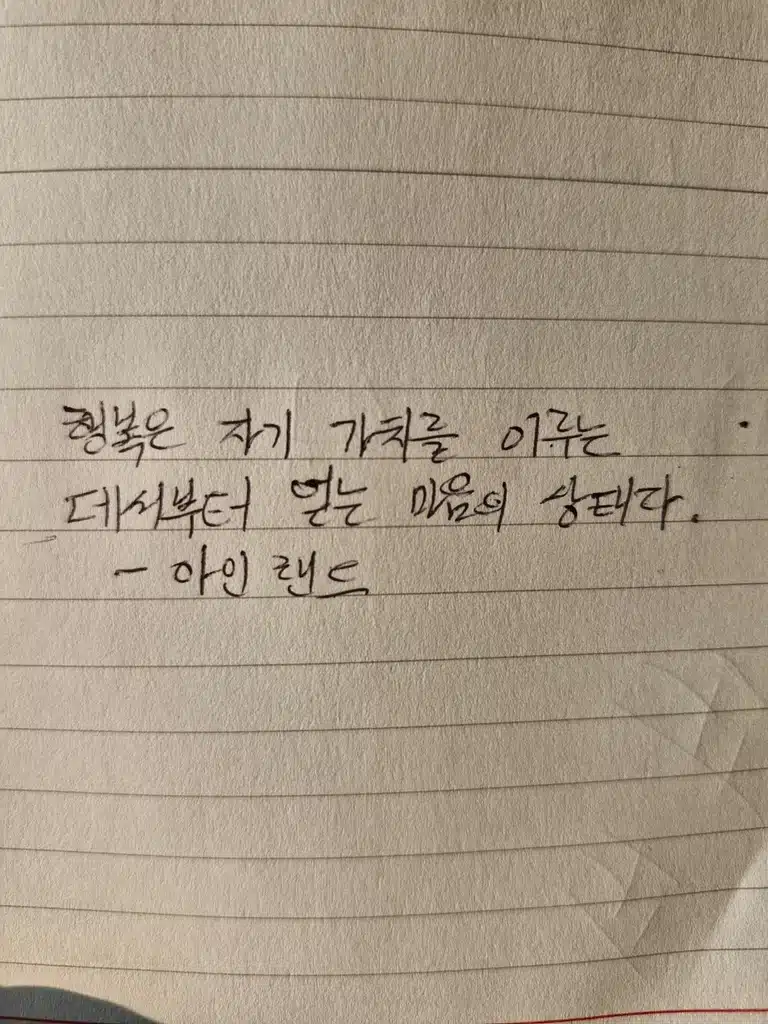 행복은 자기 가치를 이루는
데서부터 얻는 마음의 상태다.
- 아인 랜드